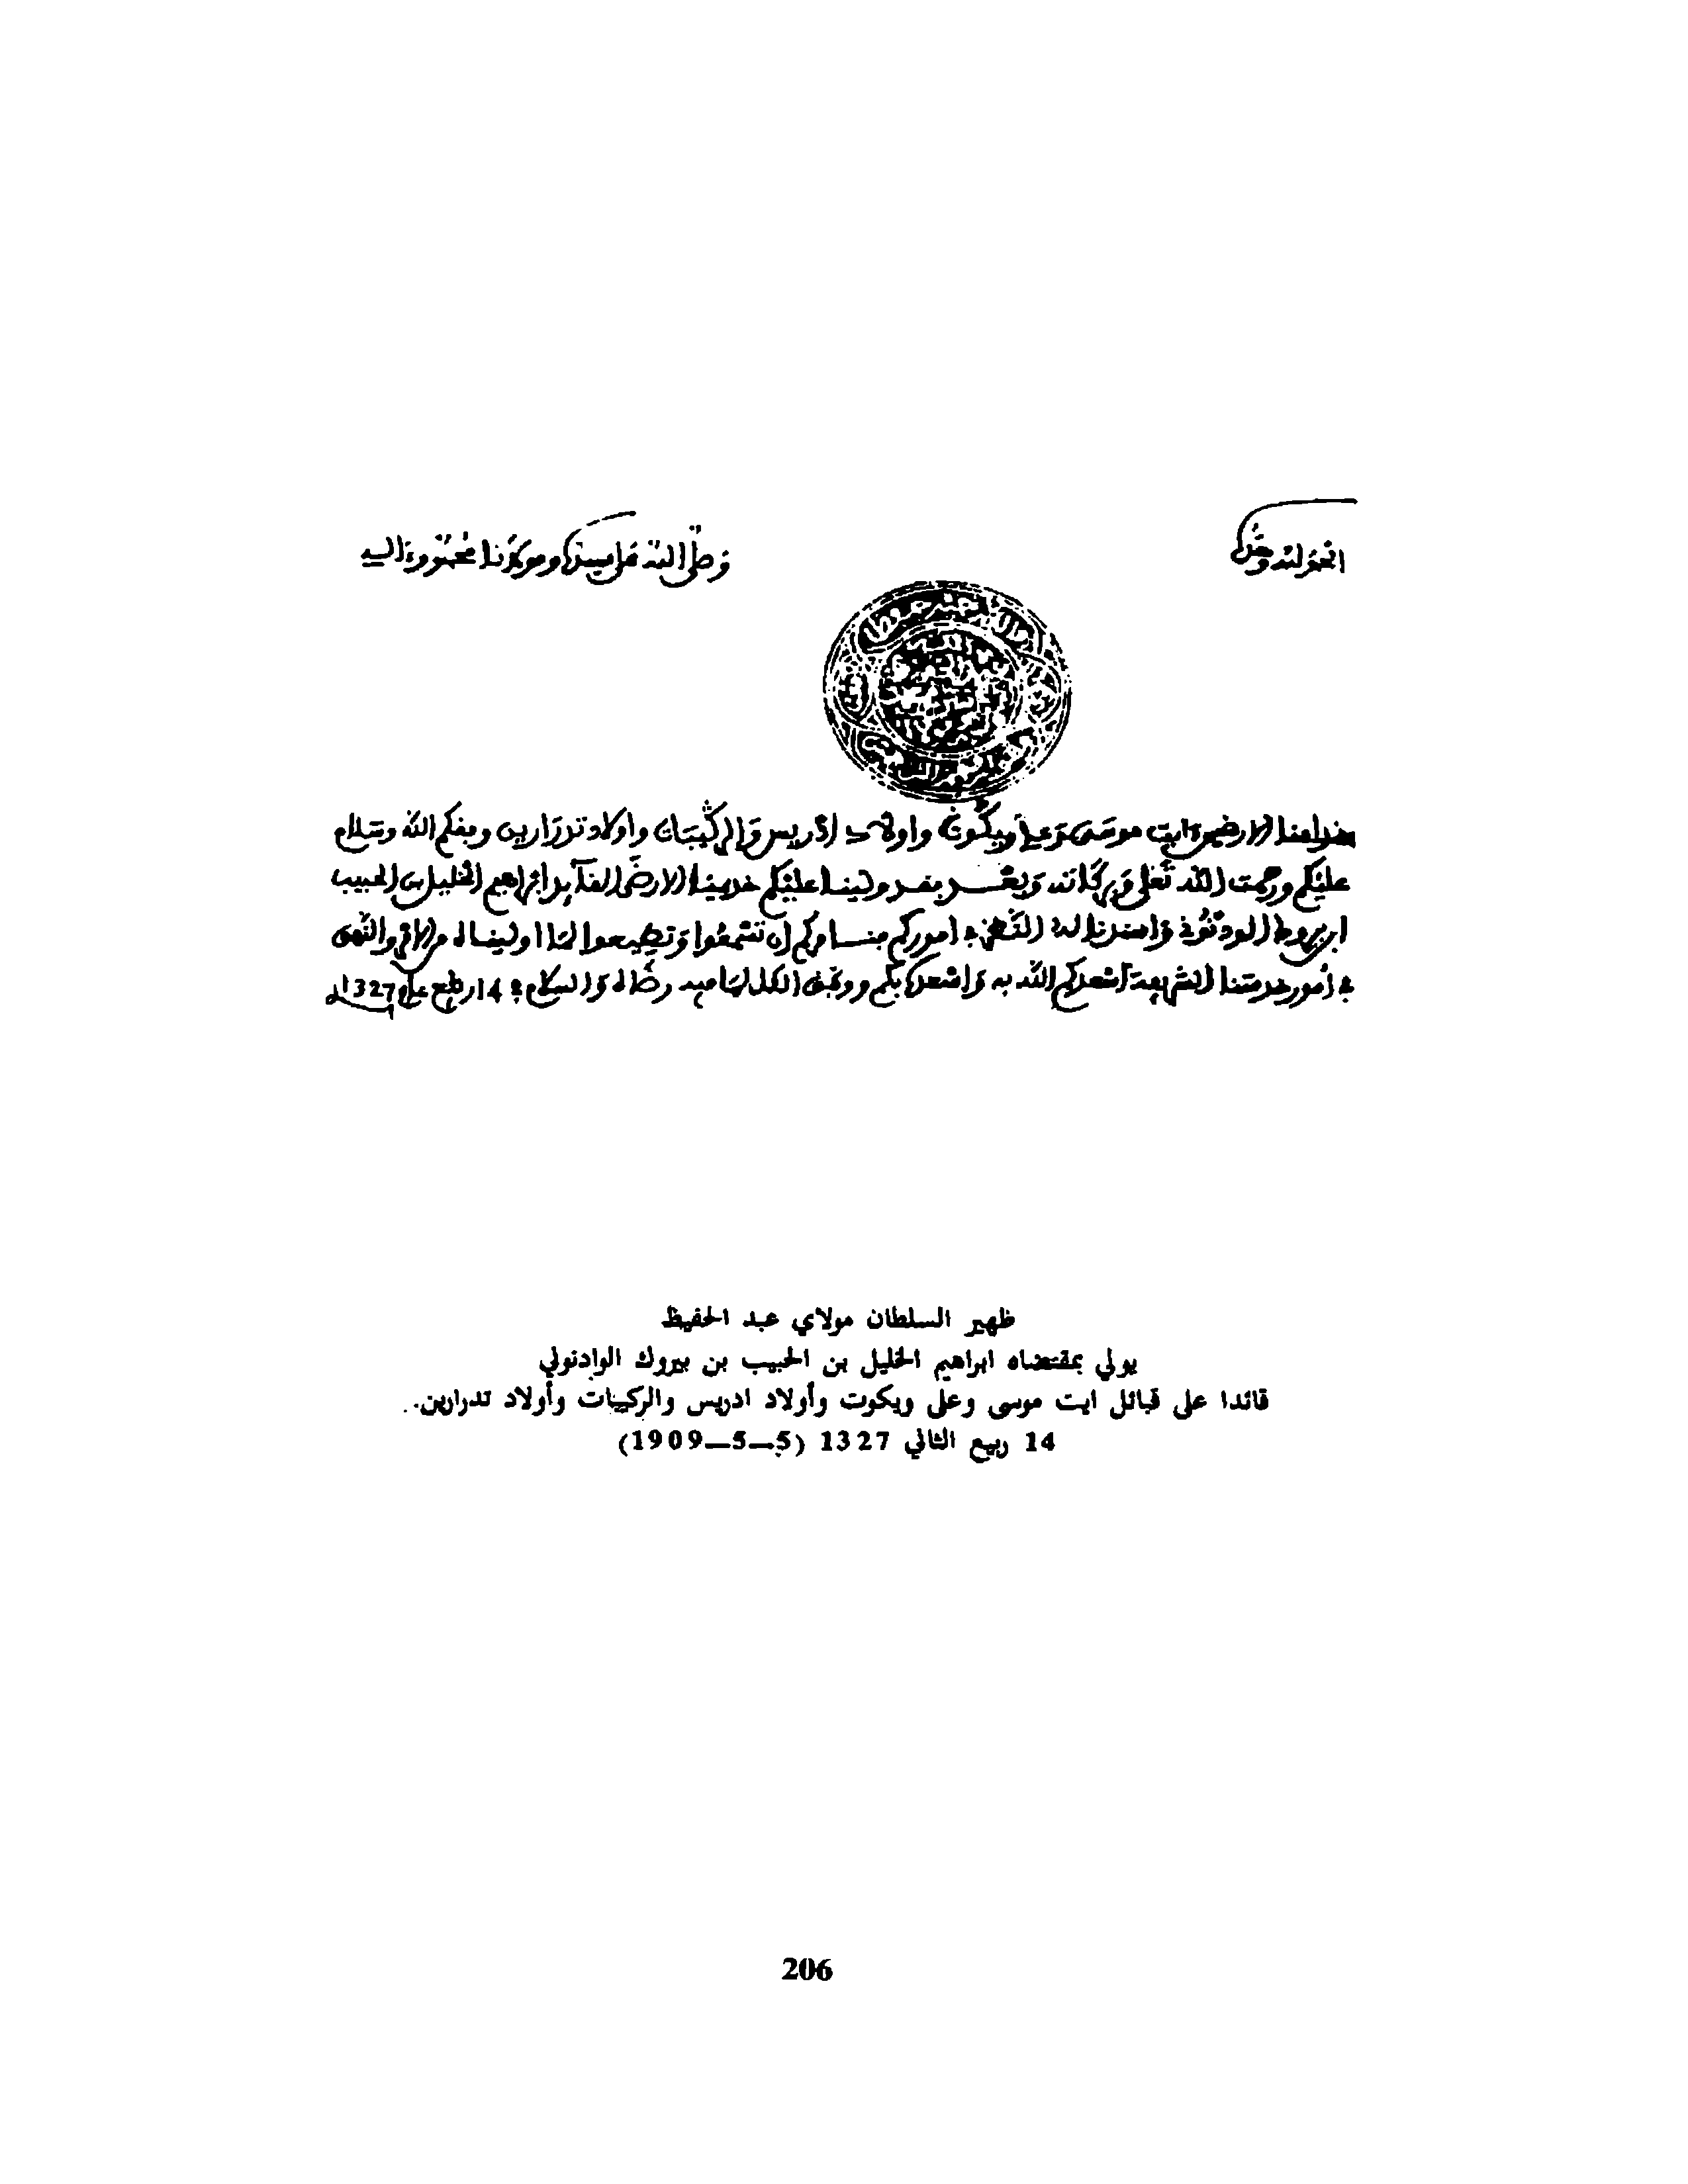 الحمد لله وحده
وصلى الله على سيدنا ومولانا محمد وءاله
خدامنا الارضين ايت موسى وعلي ويكوت واولاد ادريس والركيبات واولاد تدرارين وفقكم الله وسلام
عليكم ورحمت الله تعلى وبركاته وبعد فقد ولينا عليكم خديمنا الارضى القائد ابراهيم الخليل بن الحبيب
ابن بيروك الوادنوني واسندنا له النظر في اموركم فنامركم ان تسمعوا وتطيعوا لما اوليناه من الامر والنهى
في امور خدمتنا الشريفة اسعدكم الله به واسعده بكم ووفق الكل لما فيه رضاه والسلام في 14 ربيع عام 1327
ظهير السلطان مولاي عبد الحفيظ
يولي بمقتضاه ابراهيم الخليل بن الحبيب بن بيروك الوادنولي
قائدا على قبائل ايت موسى وعلى ويكوت وأولاد ادريس والركيبات وأولاد تدرارين..
14 ربيع الثاني 1327 (5—5—1909)
206